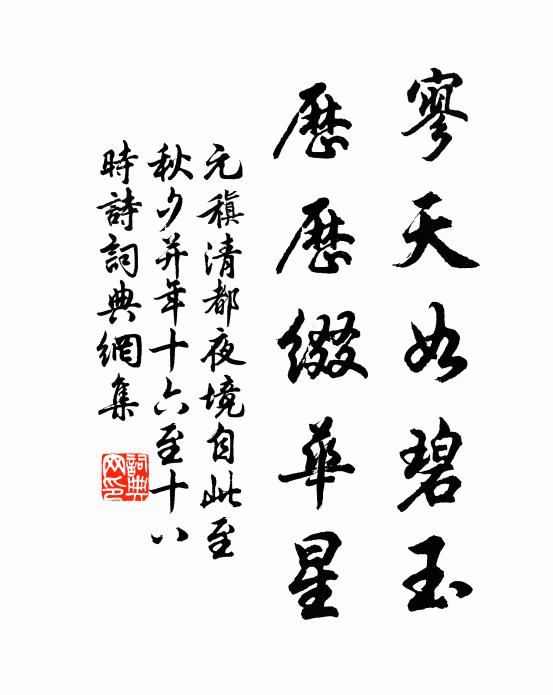 寥天如碧玉
歷歷綴華星
元稹清都夜境自此至
秋夕并年十六至十八
時詩詞典網集
詞典网印